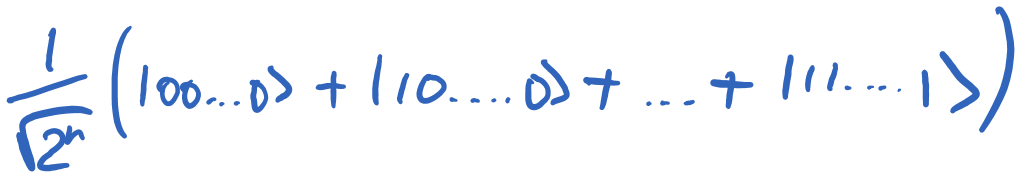 1/√2ⁿ (|00...0⟩ + |10....0⟩ + .... + |11....1⟩)